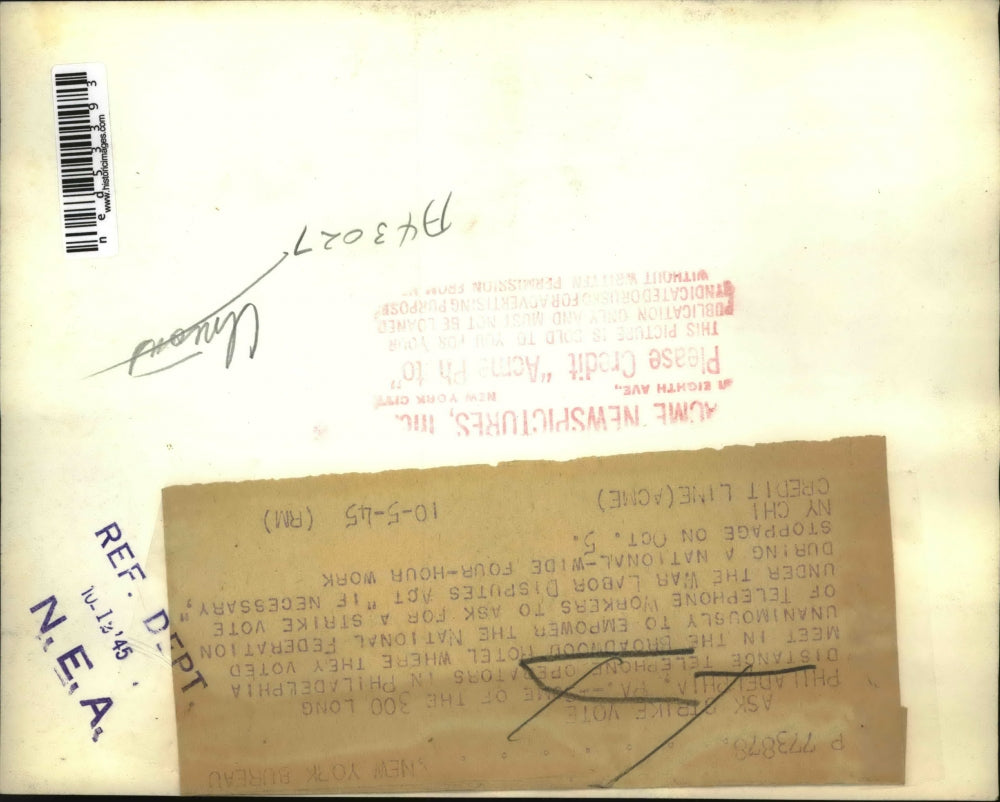 ned53393
www.historicimages.com
A43027
Unions
ACME NEWSPICTURES, Inc.
EIGHTH AVE., NEW YORK CITY
Please Credit "Acme Photo"
THIS PICTURE IS SOLD TO YOU FOR YOUR
PUBLICATION ONLY AND MUST NOT BE LOANED
SYNDICATED OR USED FOR ADVERTISING PURPOSES
WITHOUT WRITTEN PERMISSION FROM
P 773878 NEW YORK BUREAU
ASK STRIKE VOTE
PHILADELPHIA, PA.--SOME OF THE 300 LONG
DISTANCE TELEPHONE OPERATORS IN PHILADELPHIA
MEET IN THE BROADWOOD HOTEL WHERE THEY VOTED
UNANIMOUSLY TO EMPOWER THE NATIONAL FEDERATION
OF TELEPHONE WORKERS TO ASK FOR A STRIKE VOTE
UNDER THE WAR LABOR DISPUTES ACT "IF NECESSARY,"
DURING A NATIONAL-WIDE FOUR-HOUR WORK
STOPPAGE ON OCT. 5.
NY CHI
CREDIT LINE(ACME) 10-5-45 (RM)
REF. DEPT.
10-12'45
N.E.A.